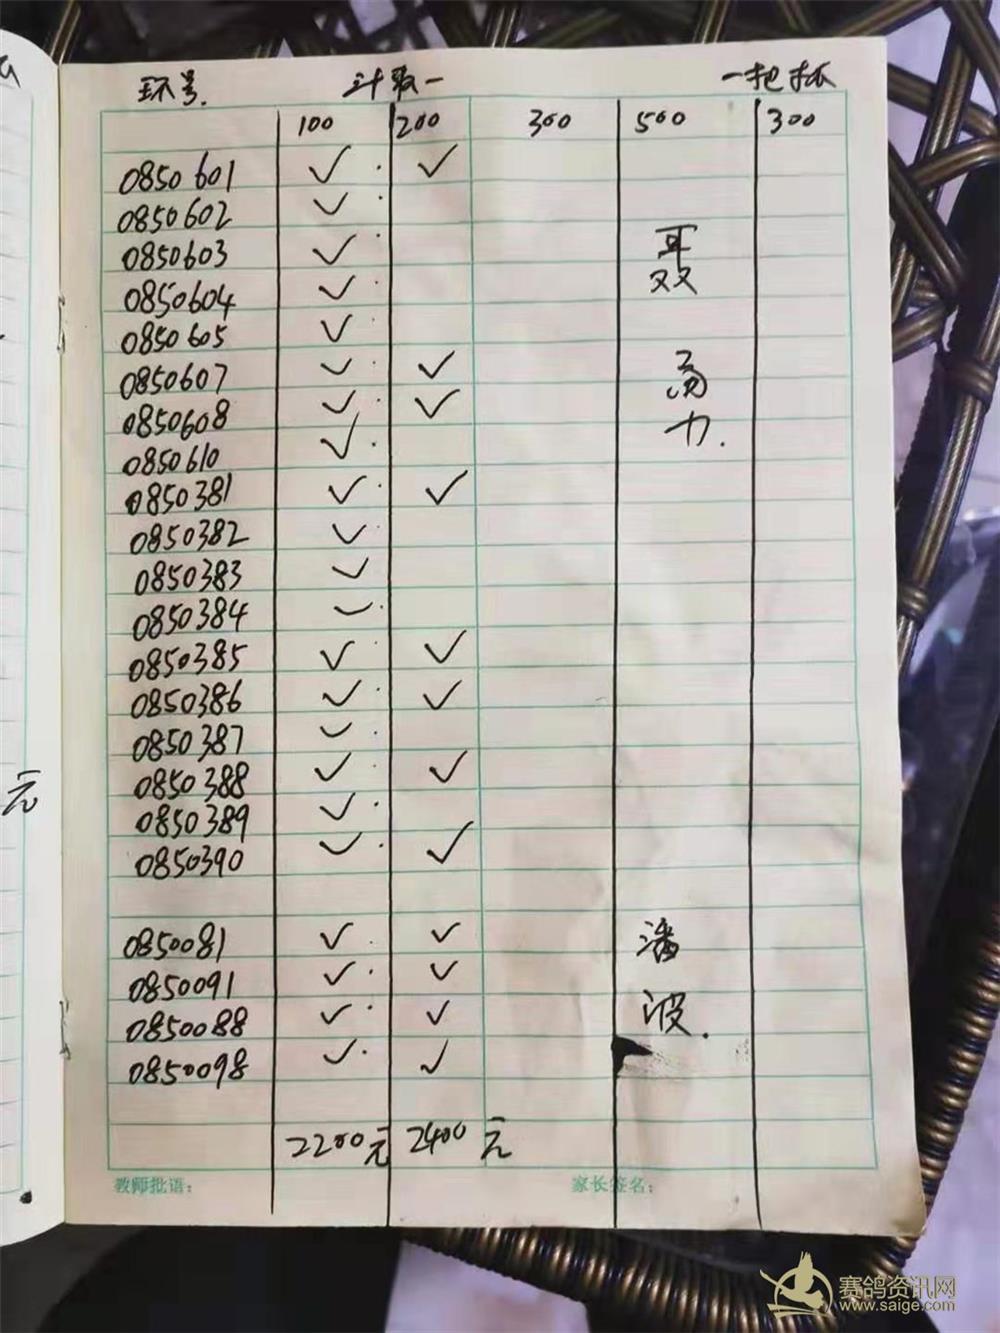 环号. 计取一 一把抓
100 200 300 500 300
0850601 ✓ ✓
0850602 ✓
0850603 ✓
0850604 ✓
0850605 ✓
0850607 ✓ ✓
0850608 ✓ ✓
0850610 ✓
0850381 ✓ ✓
0850382 ✓
0850383 ✓
0850384 ✓
0850385 ✓ ✓
0850386 ✓ ✓
0850387 ✓
0850388 ✓ ✓
0850389 ✓
0850390 ✓ ✓
双
力.
0850081 ✓ ✓
0850091 ✓ ✓
0850088 ✓ ✓
0850098 ✓ ✓
潘
波.
2200元 2400元
教师批语: 家长签名:
元
赛鸽资讯网
www.saige.com